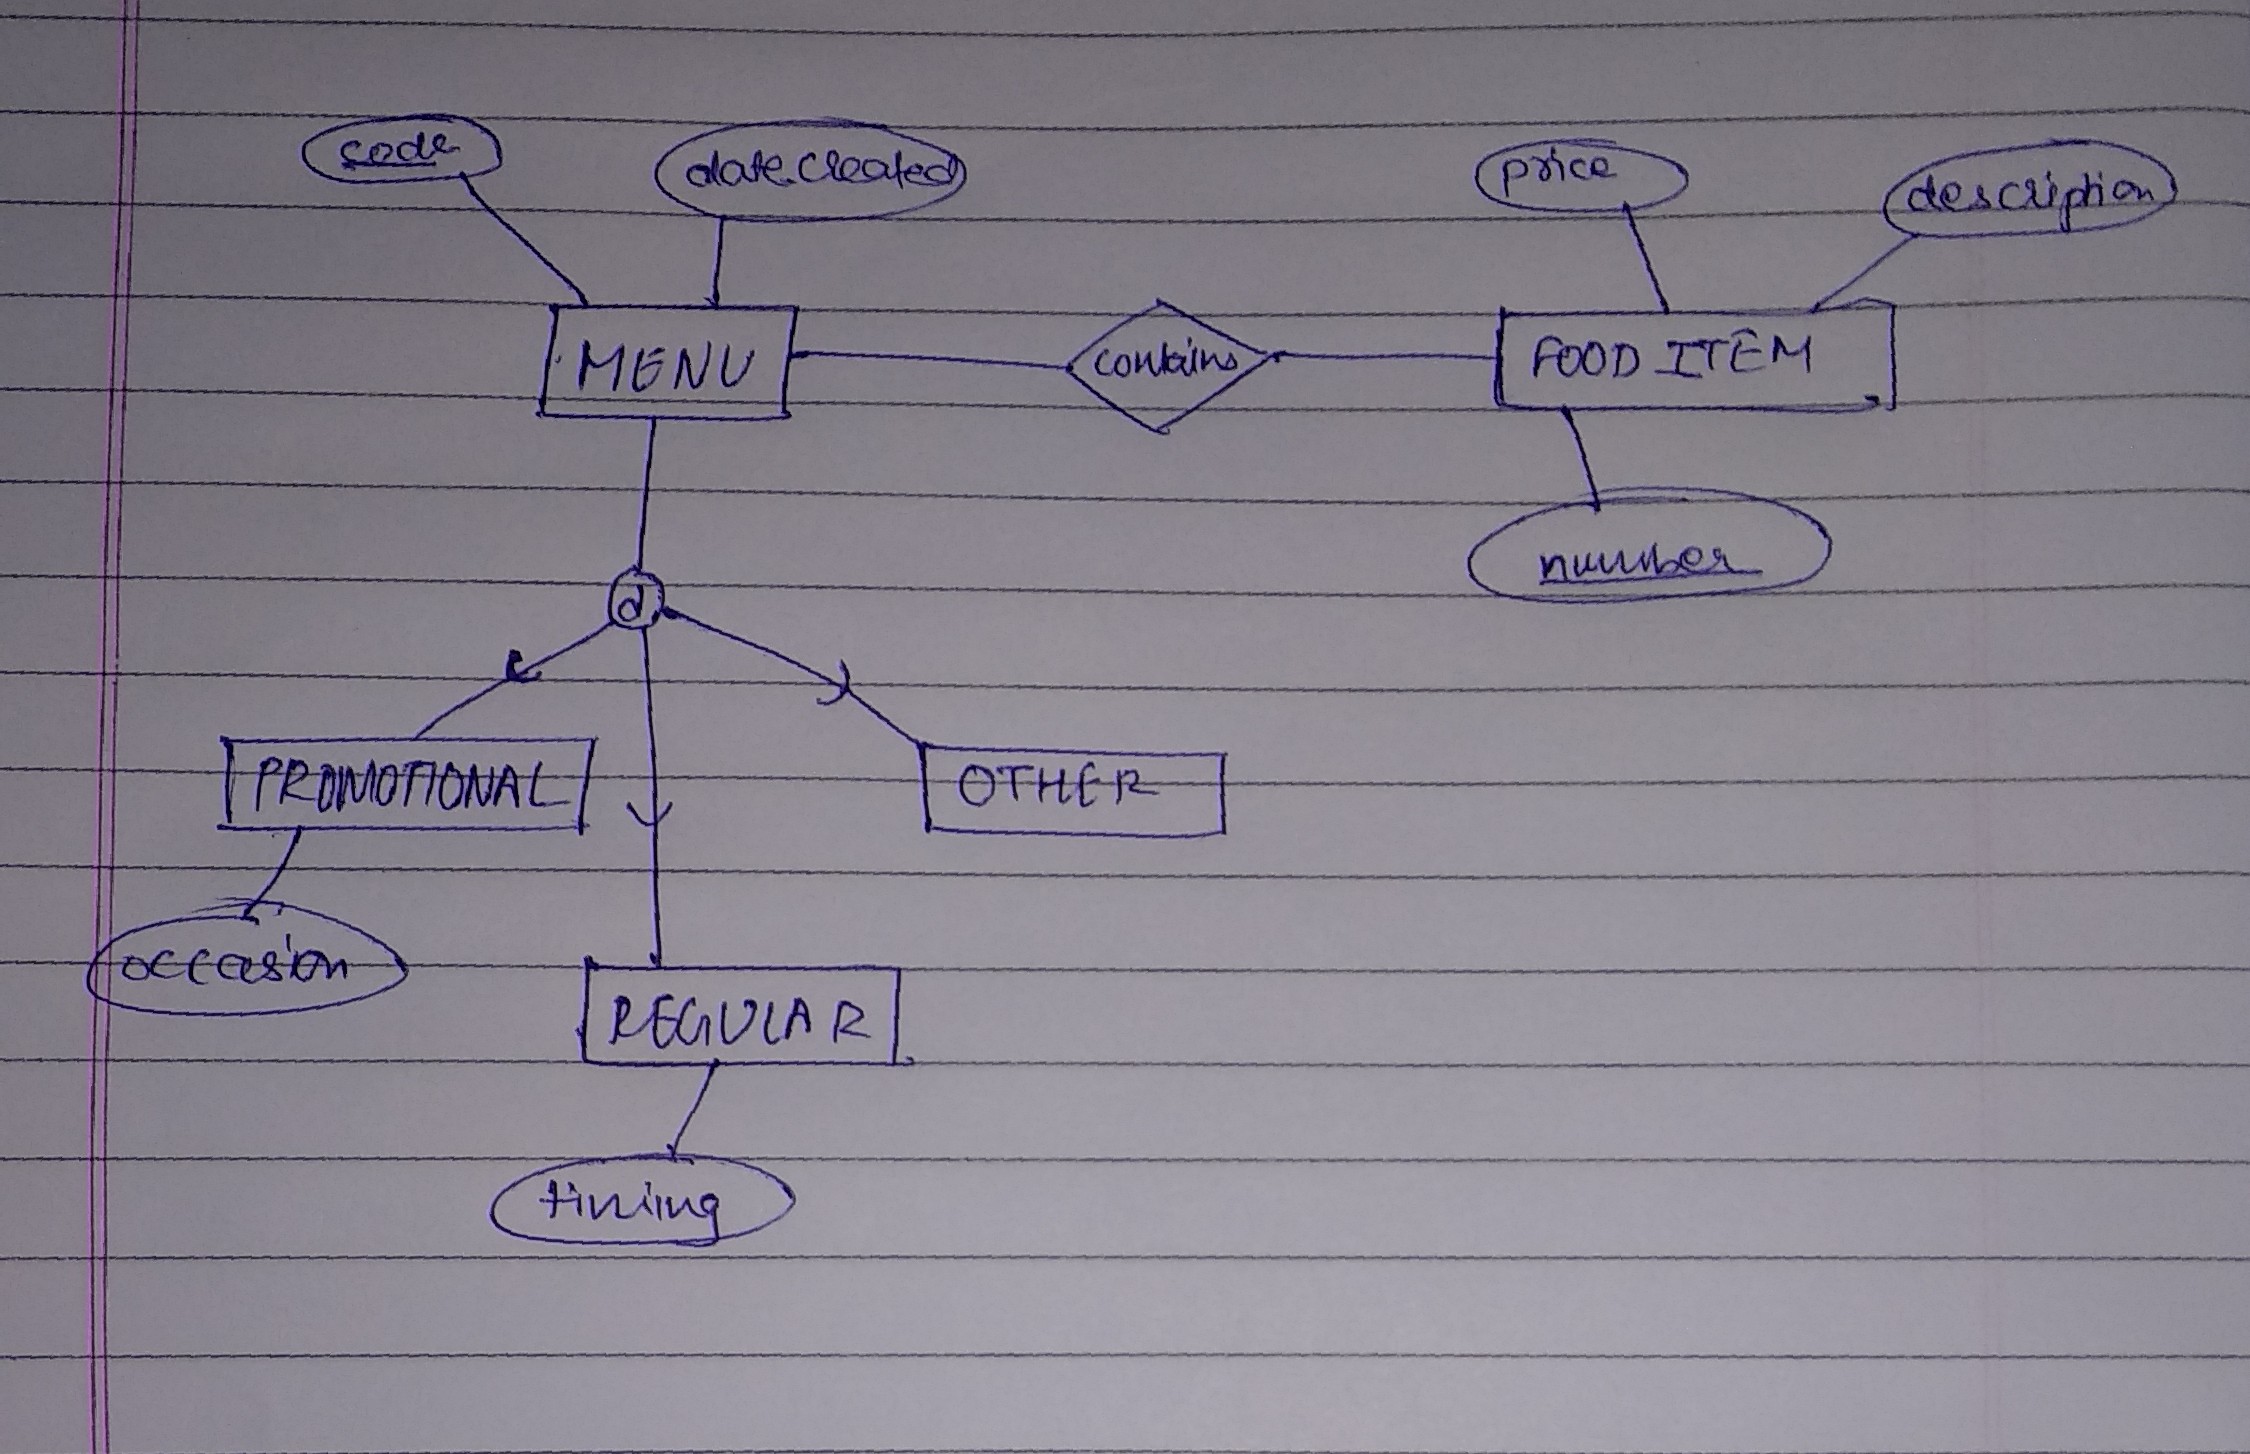 code
date created
price
description
MENU
contains
FOOD ITEM
number
d
PROMOTIONAL
OTHER
occasion
REGULAR
timing